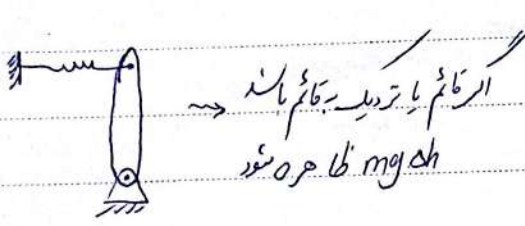 اگر قائم یا نزدیک به قائم باشد
mgΔh ظاهر میشود